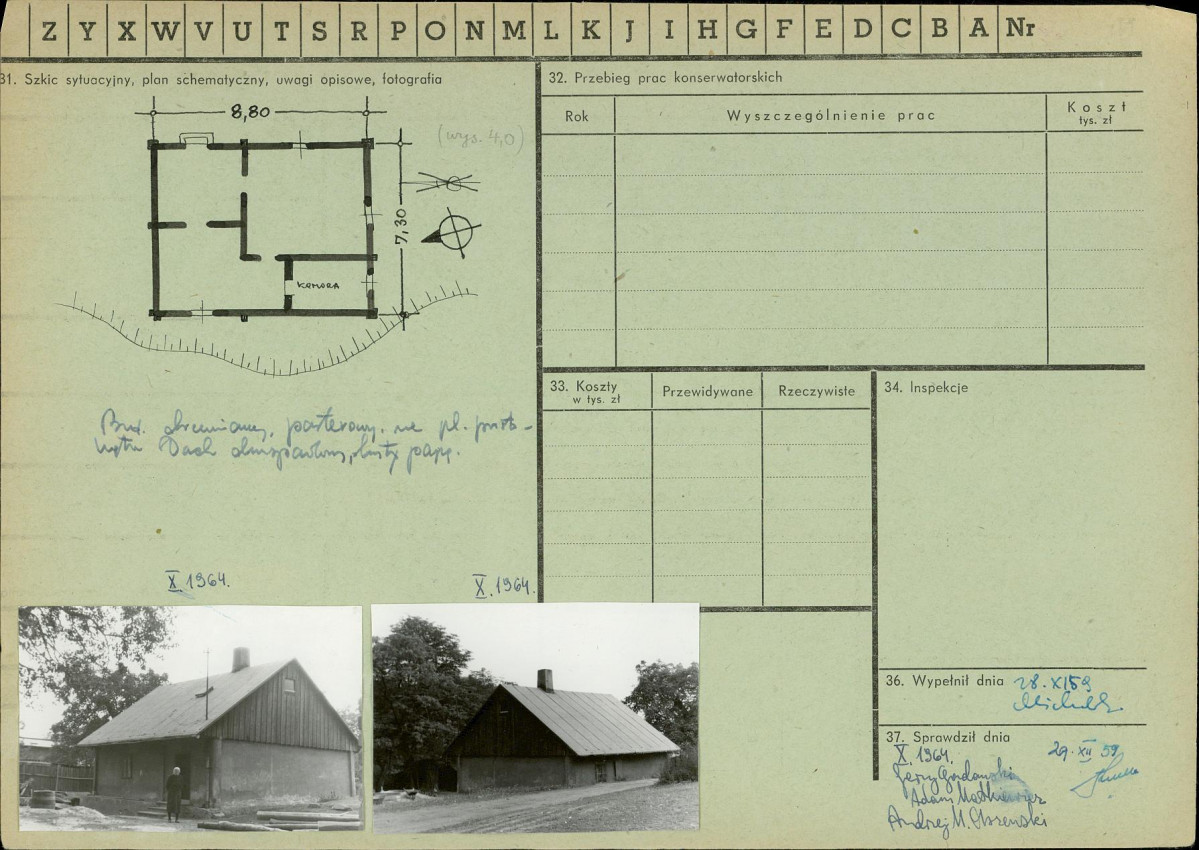 Z Y X W V U T S R P O N M L K J I H G F E D C B A Nr
31. Szkic sytuacyjny, plan schematyczny, uwagi opisowe, fotografia
8,80
(wys. 4,0)
7,30
KOMORA
Bud. drewniany, parterowy, na pl. prosto-
kąta Dach dwuspadowy, kryty papą.
X.1964.
X.1964.
32. Przebieg prac konserwatorskich
Rok
Wyszczególnienie prac
Koszt
tys. zł
33. Koszty
w tys. zł
Przewidywane
Rzeczywiste
34. Inspekcje
36. Wypełnił dnia 28.XI59
37. Sprawdził dnia
X.1964. 29.XII 59
Jerzy
Adam
Andrzej M.